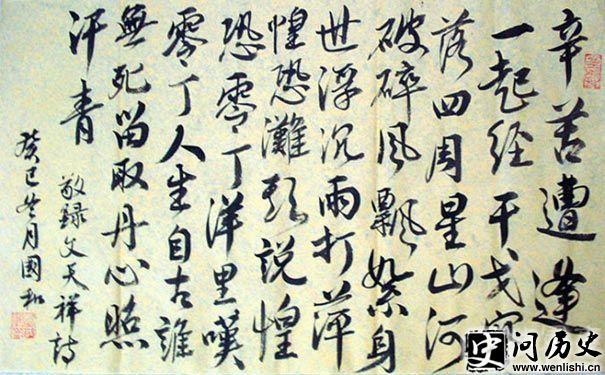 辛苦遭逢
一起经干戈寥
落四周星山河
破碎风飘絮身
世浮沉雨打萍
惶恐灘头说惶
恐零丁洋里嘆
零丁人生自古誰
無死留取丹心照
汗青
敬録文天祥詩
癸巳冬月國和
问历史
www.wenlishi.cn